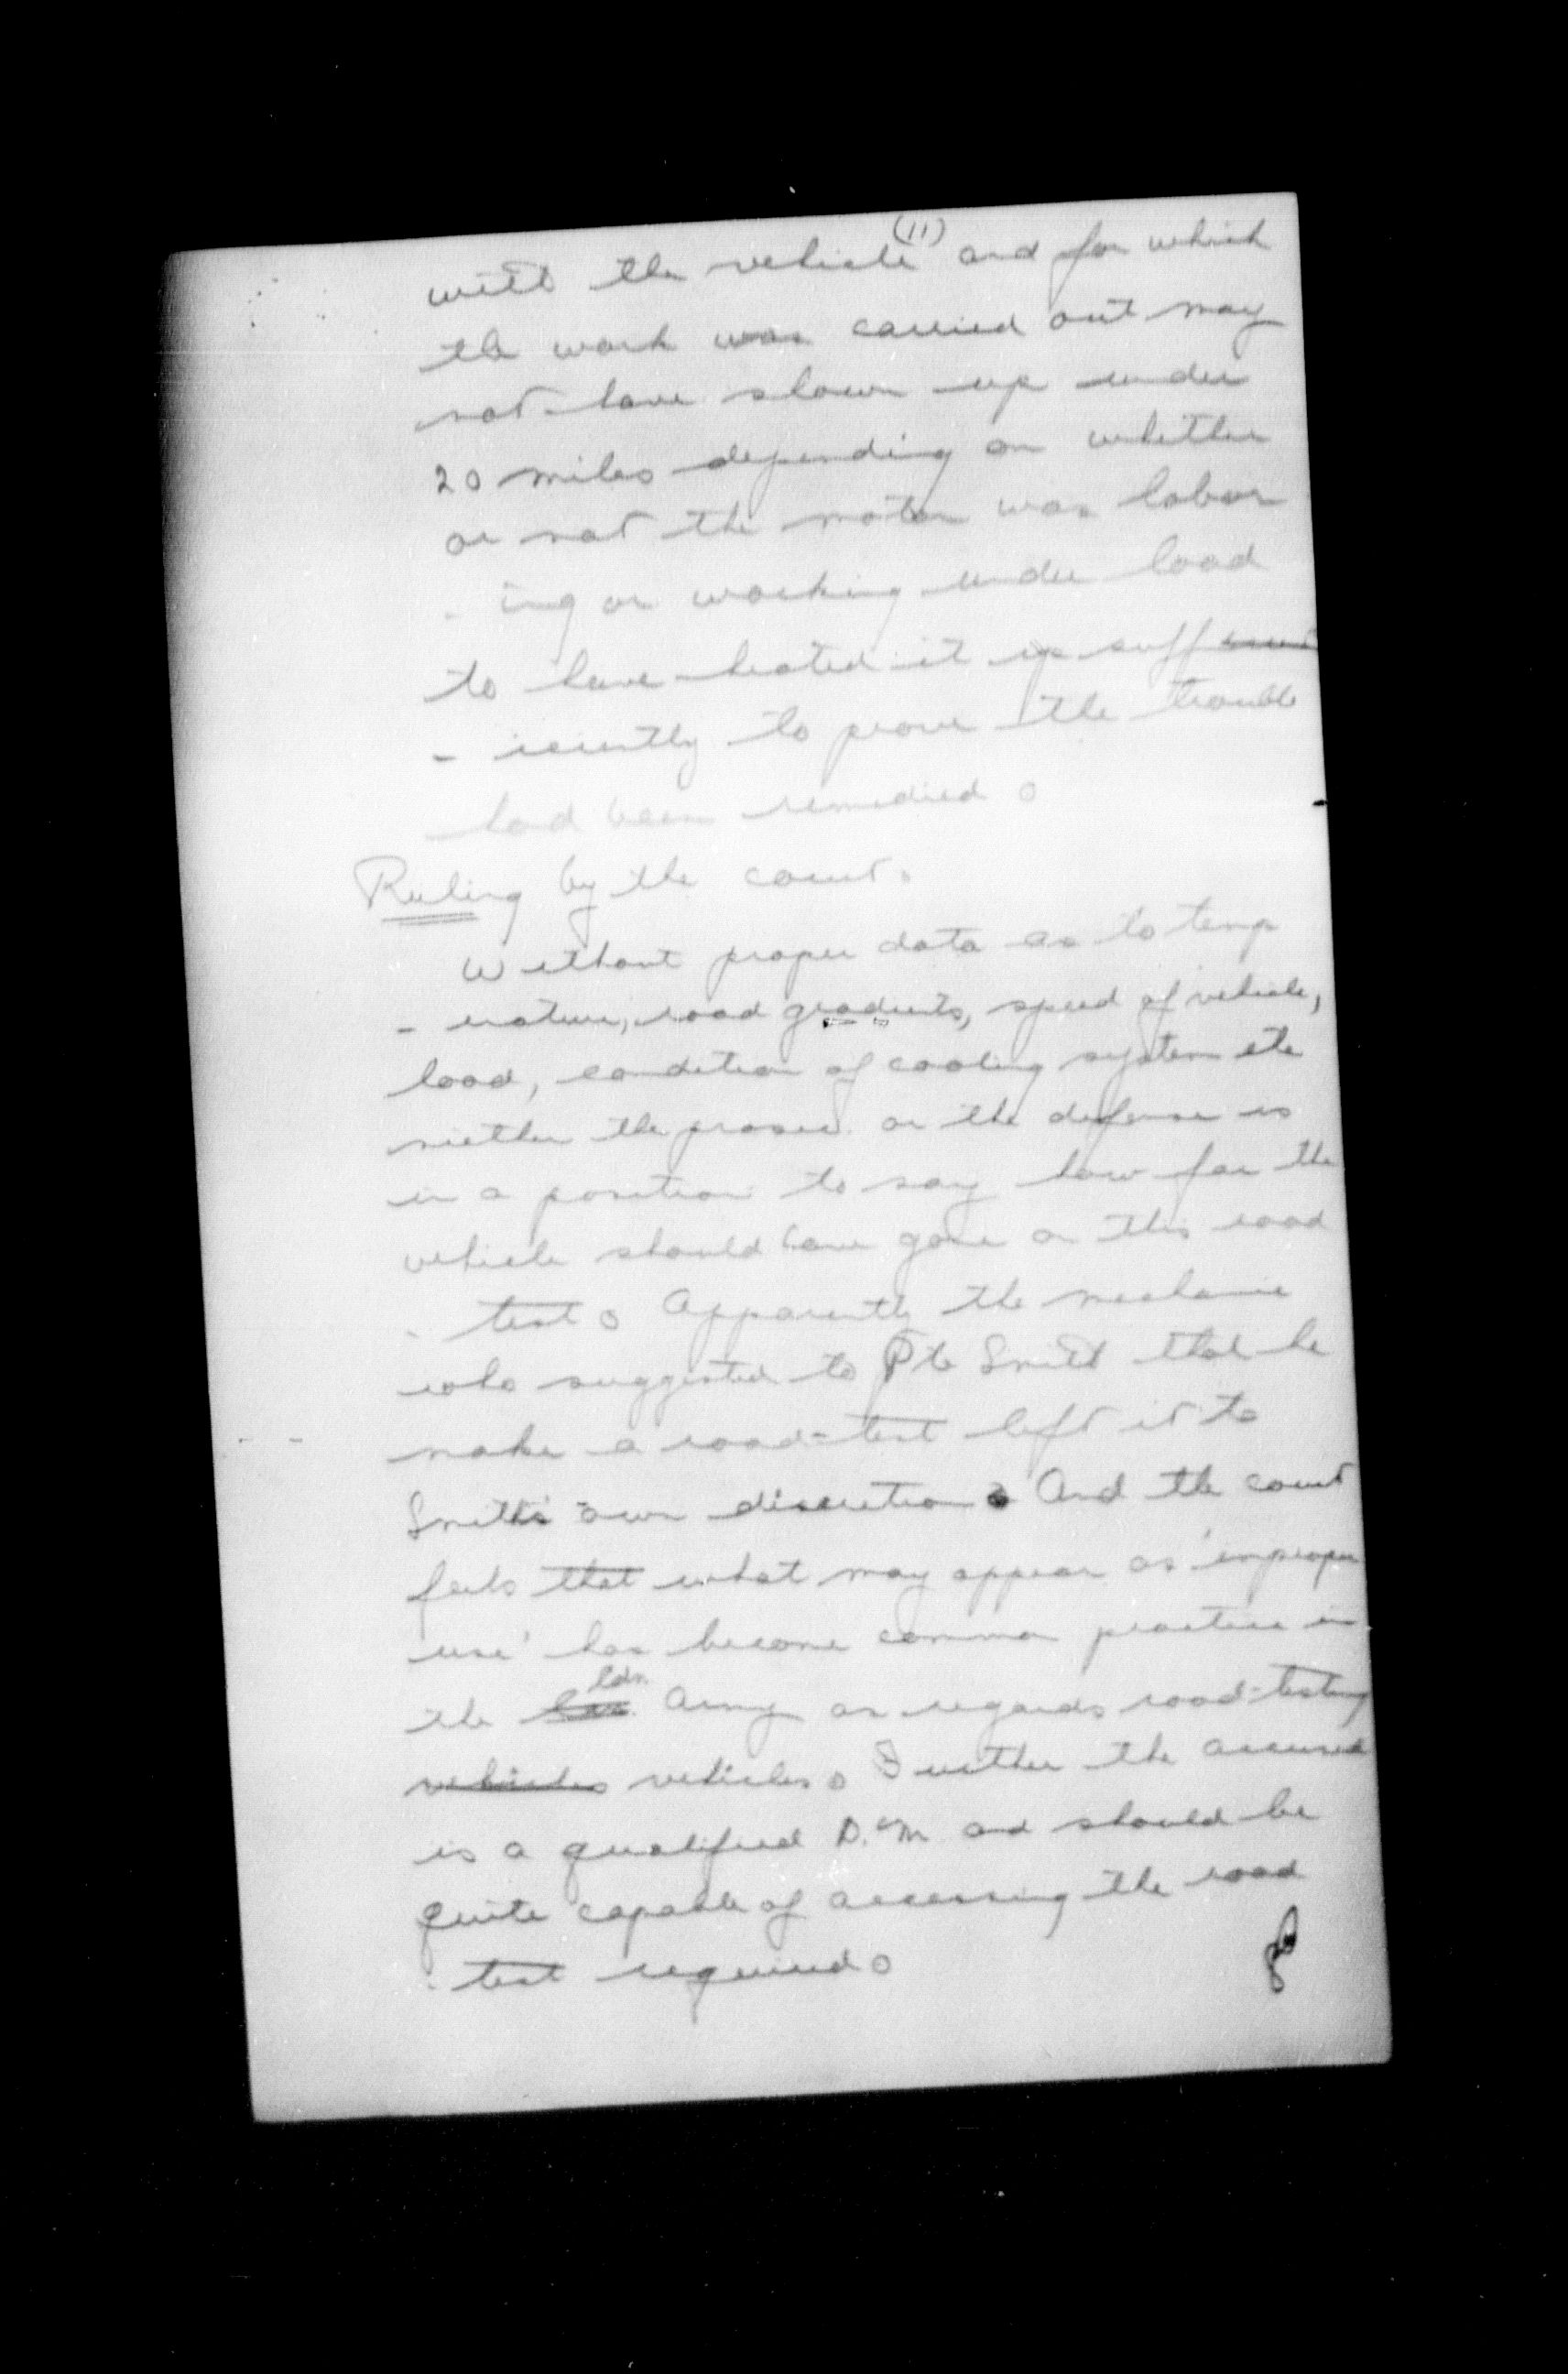 (11)
with the vehicle and for which
the work was carried out may
not have shown up under
20 miles depending on whether
or not the motor was labor
- ing or working under load
to have heated it up suff
- iciently to prove the trouble
had been remedied.
Ruling by the court.
Without proper data as to temp
- erature, road gradients, speed of vehicle,
load, condition of cooling system etc
neither the prosec. or the defense is
in a position to say how far the
vehicle should have gone on this road
- test. Apparently the mechanic
who suggested to Pte Smith that he
make a road-test left it to
Smith's own discretion. And the court
feels that what may appear as 'improper
use' has become common practice in
the Cdn. Army as regards road-testing
vehicles vehicles. Further the accused
is a qualified D.M and should be
quite capable of accessing the road
- test required.